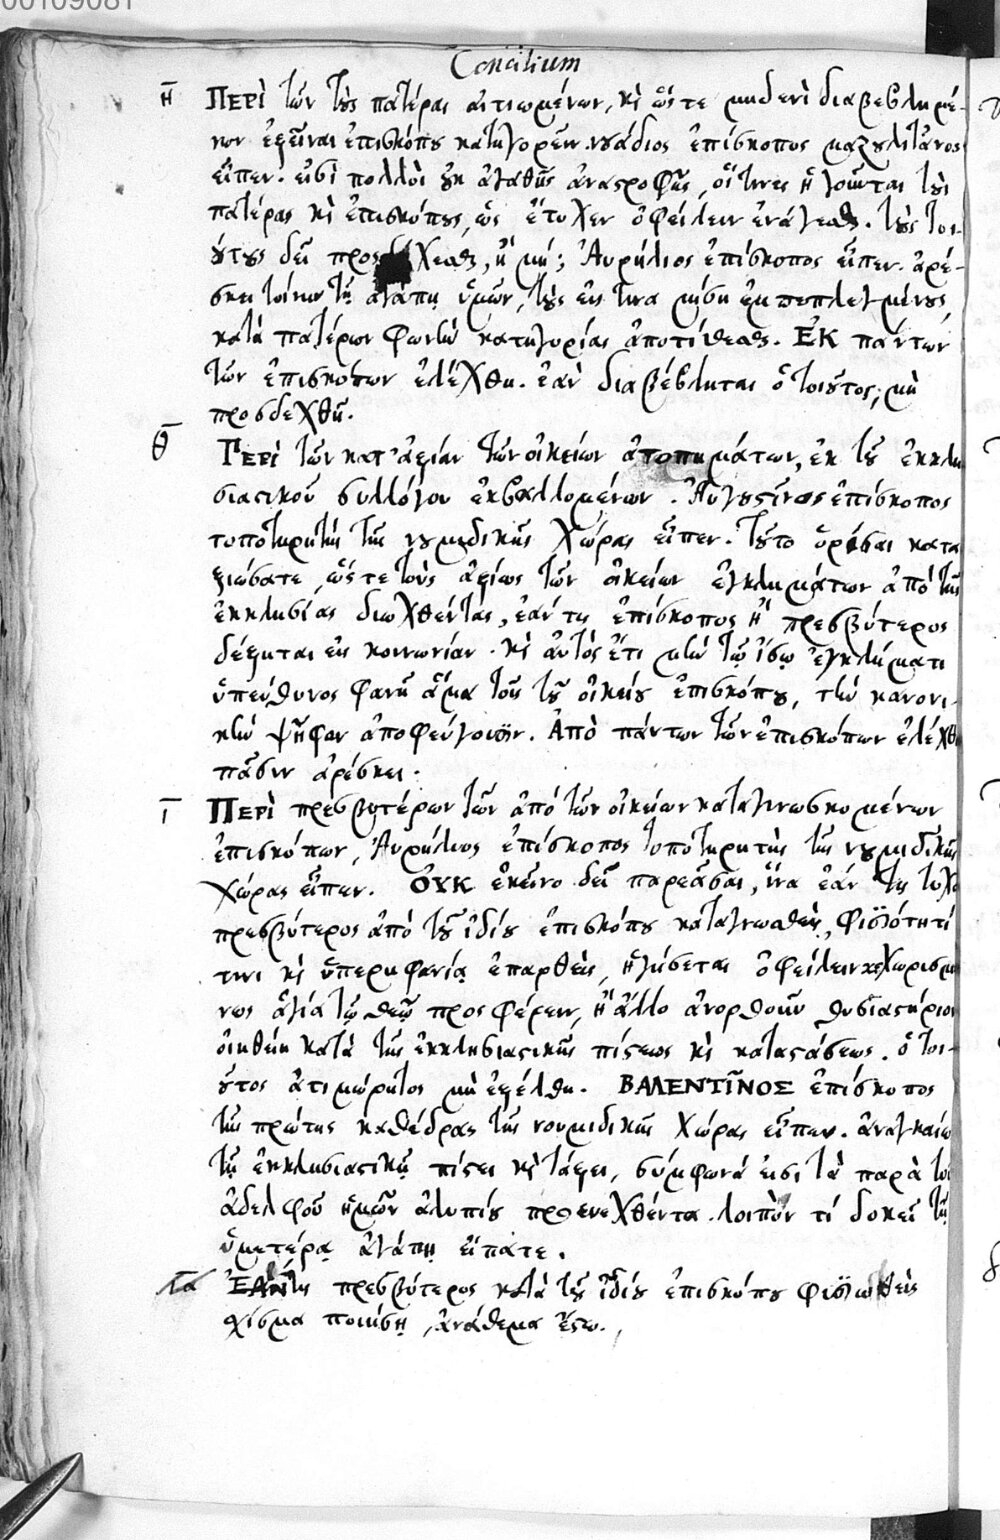 00109081
Concilium
η Περὶ τῶν τοὺς πατέρας αἰτιωμένων, κὶ ὥστε μηδενὶ διαβεβλημέ-
νον ἐξεῖναι ἐπισκόπου κατηγορεῖν. νουάδιος ἐπίσκοπος μαζουλιτάνος
εἶπεν. εἰσὶ πολλοὶ οὐκ ἀγαθῆς ἀναστροφῆς, οἵτινες ἡγοῦνται τοὺς
πατέρας κὶ ἐπισκόπους, ὡς ἔτυχεν ὀφείλειν ἐνάγεσθαι. τοὺς τοι-
ούτους δεῖ προσδέχεσθαι, ἢ μή; Αὐρήλιος ἐπίσκοπος εἶπεν. ἀρέ-
σκει τοίνυν τῇ ἀγάπῃ ὑμῶν, τοὺς εἴς τινα μύση ἐμπεπλεγμένους,
κατὰ πατέρων φωνὴν κατηγορίας ἀποτίθεσθαι. ΕΚ πάντων
τῶν ἐπισκόπων ἐλέχθη. ἐὰν διαβέβληται ὁ τοιοῦτος, μὴ
προσδεχθῇ.
θ Περὶ τῶν κατ' ἀξίαν τῶν οἰκείων ἀτοπημάτων, ἐκ τοῦ ἐκκλη
σιαστικοῦ συλλόγου ἐκβαλλομένων. Αὐγουστῖνος ἐπίσκοπος
τοποτηρητὴς τῆς νουμιδικῆς χώρας εἶπεν. τοῦτο ὁρίσαι κατα
ξιώσατε, ὥστε τοὺς ἀξίως τῶν οἰκείων ἐγκλημάτων ἀπὸ τῆς
ἐκκλησίας διωχθέντας, ἐάν τις ἐπίσκοπος ἢ πρεσβύτερος
δέξηται εἰς κοινωνίαν. κὶ αὐτὸς ἔτι μὴν τῷ ἴσῳ ἐγκλήματι
ὑπεύθυνος φανῇ ἅμα τοῖς τοῦ οἰκείου ἐπισκόπου, τὴν κανονι-
κὴν ψῆφον ἀποφεύγουσιν. Ἀπὸ πάντων τῶν ἐπισκόπων ἐλέχθη
πᾶσιν ἀρέσκει.
ι Περὶ πρεσβυτέρων τῶν ἀπὸ τῶν οἰκείων καταγινωσκομένων
ἐπισκόπων, Αὐρήλιος ἐπίσκοπος τοποτηρητὴς τῆς νουμιδικῆς
χώρας εἶπεν. ΟΥΚ ἐκεῖνο δεῖ παρεᾶσαι, ἵνα ἐάν τις τυχὸ
πρεσβύτερος ἀπὸ τοῦ ἰδίου ἐπισκόπου καταγνωσθεὶς, φυσιότητί
τινι κὶ ὑπερηφανίᾳ ἐπαρθεὶς, ἡγήσεται ὀφείλειν κεχωρισμέ
νως ἅγια τῷ θεῷ προσφέρειν, ἢ ἄλλο ἀνορθοῦν θυσιαστήριον
οἰηθείη κατὰ τῆς ἐκκλησιαστικῆς πίστεως κὶ καταστάσεως. ὁ τοι-
οῦτος ἀτιμώρητος μὴ ἐξέλθῃ. ΒΑΛΕΝΤΙΝΟΣ ἐπίσκοπος
τῆς πρώτης καθέδρας τῆς νουμιδικῆς χώρας εἶπεν. ἀναγκαίω
τῇ ἐκκλησιαστικῇ πίστει κὶ τάξει, σύμφωνά εἰσι τὰ παρὰ τοῦ
ἀδελφοῦ ἡμῶν ἀλυπίου προενεχθέντα. λοιπὸν τί δοκεῖ τῇ
ὑμετέρᾳ ἀγάπῃ εἴπατε.
ια ἘΑΝ τις πρεσβύτερος κατὰ τοῦ ἰδίου ἐπισκόπου φυσιωθεὶς
σχίσμα ποιήσῃ, ἀνάθεμα ἔστω.